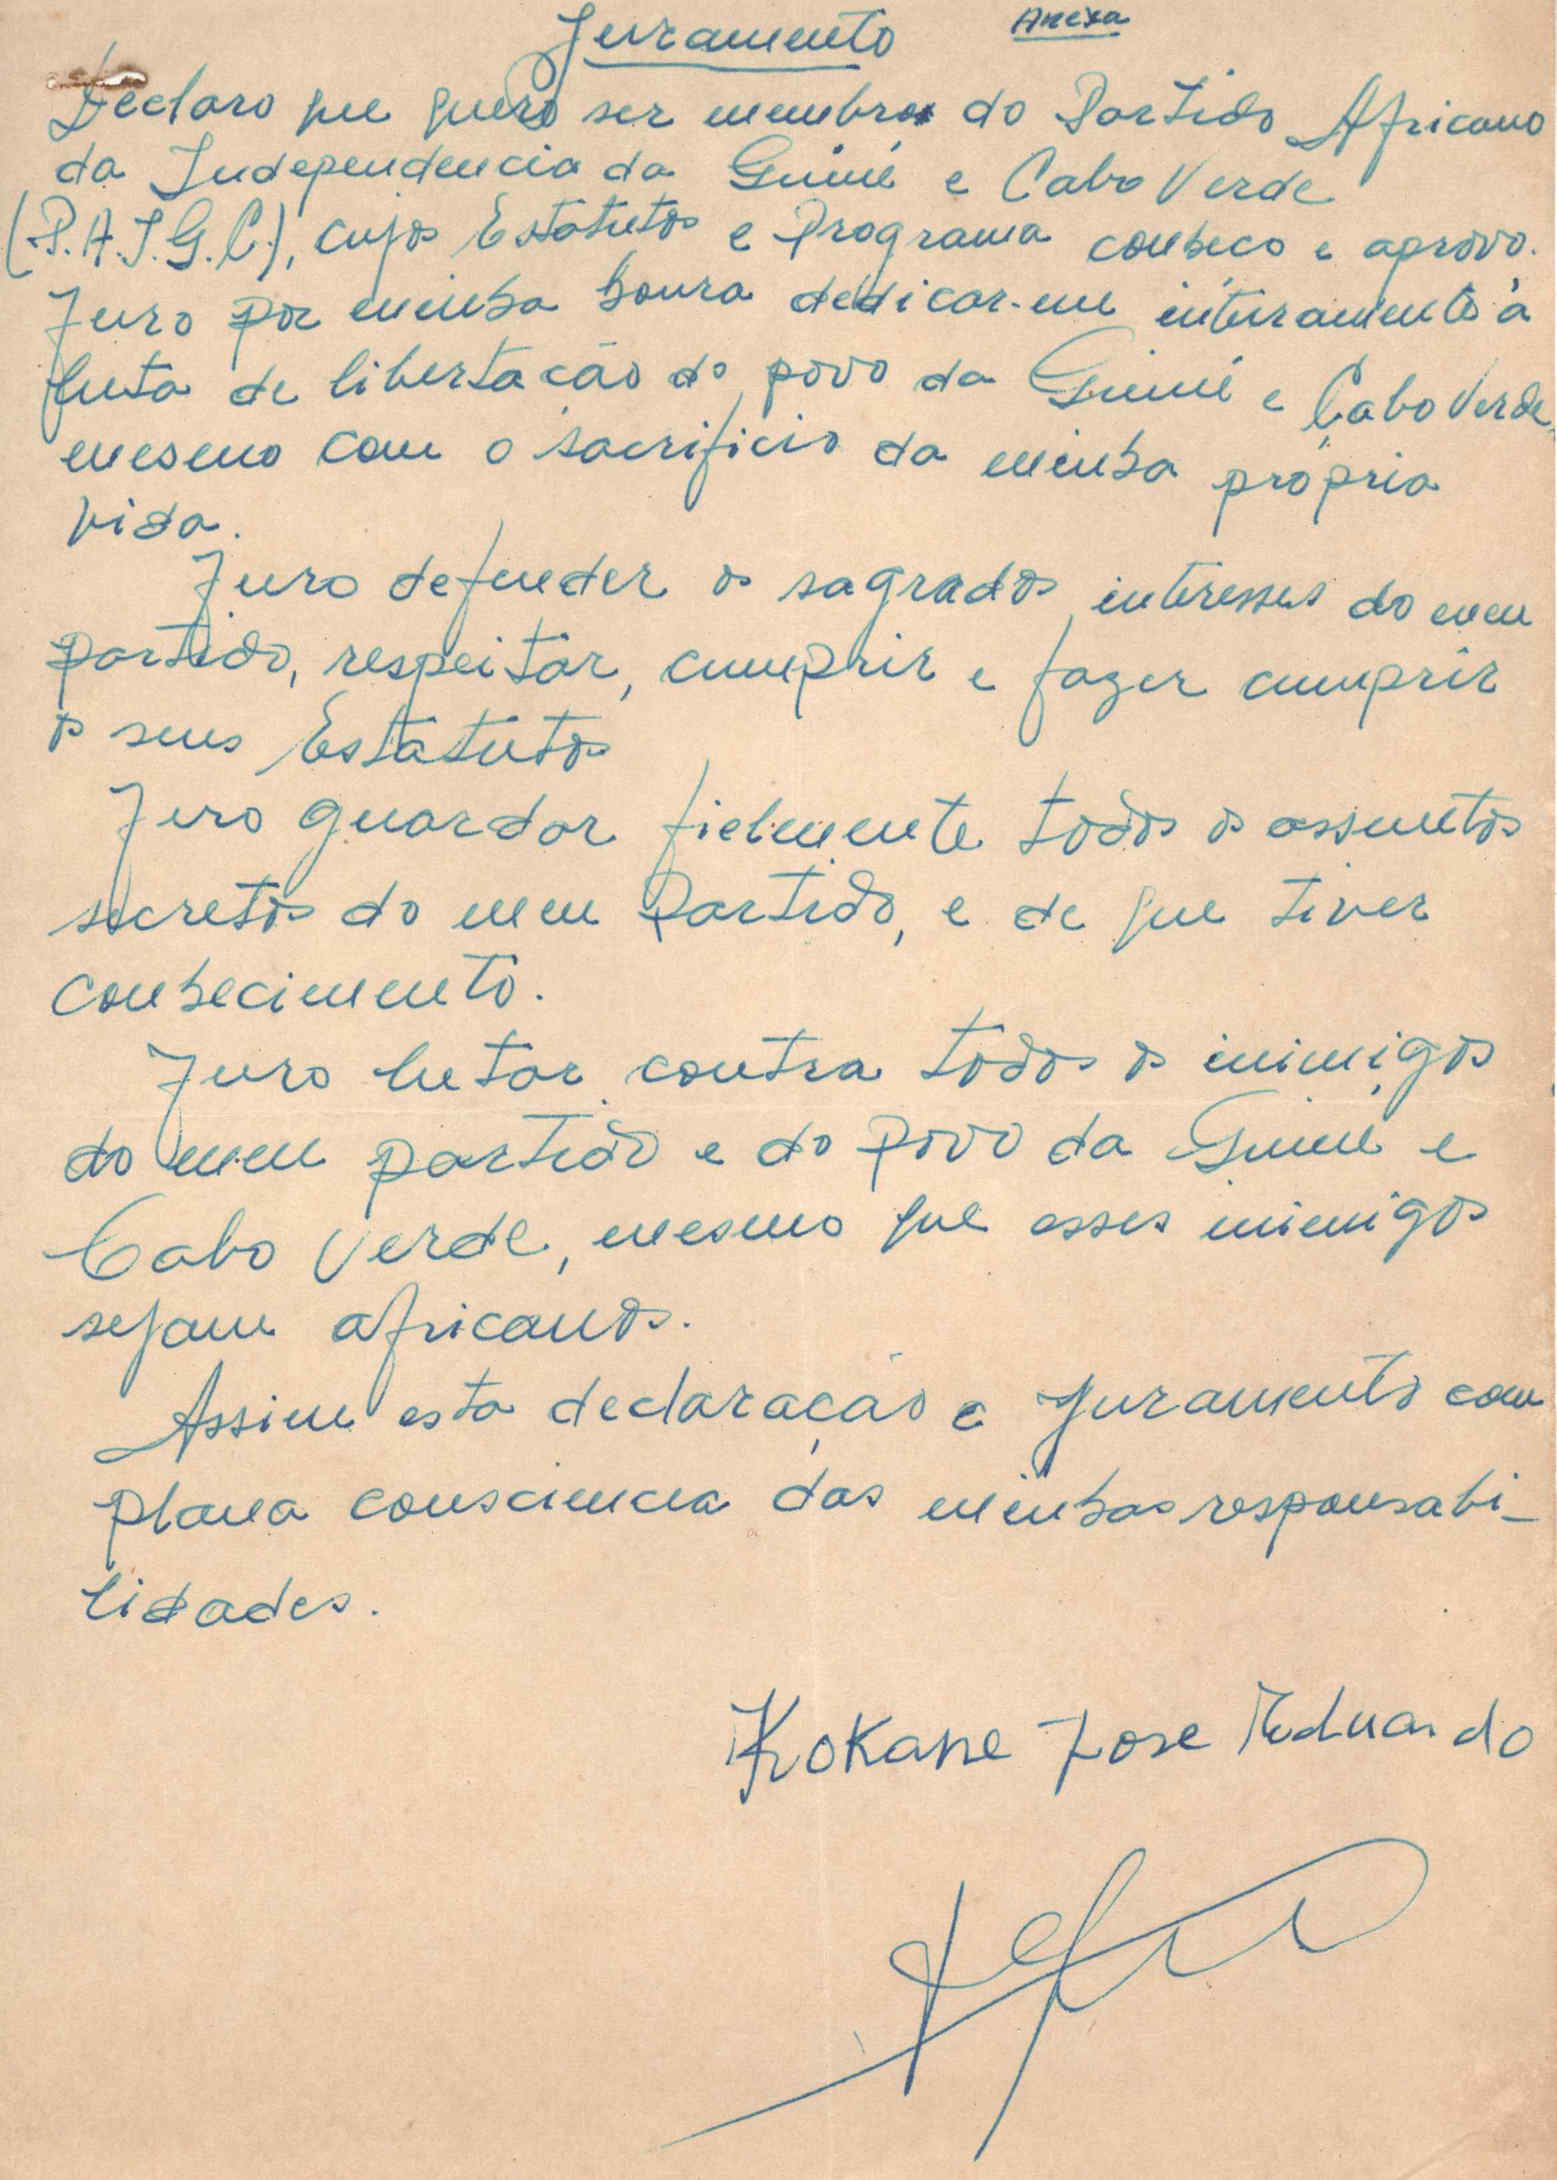 Juramento Anexa
Declaro que quero ser membro do Partido Africano
da Independencia da Guiné e Cabo Verde
(P.A.I.G.C.), cujos Estatutos e Programa conheco e aprovo.
Juro por minha honra dedicar-me inteiramente à
luta de libertacão do povo da Guiné e Cabo Verde,
mesmo com o sacrificio da minha própria
vida.
Juro defender os sagrados interesses do meu
partido, respeitar, cumprir e fazer cumprir
os seus Estatutos
Juro guardar fielmente todos os assuntos
secretos do meu Partido, e de que tiver
conhecimento.
Juro lutar contra todos os inimigos
do meu partido e do povo da Guiné e
Cabo Verde, mesmo que esses inimigos
sejam africanos.
Assino esta declaração e juramento com
plena consciencia das minhas responsabi-
lidades.
Kokane Jose Eduardo